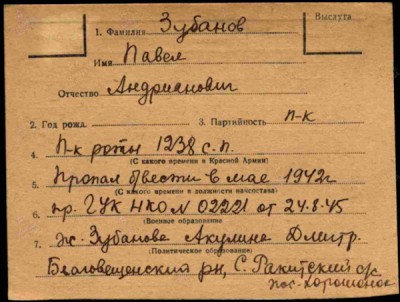 1. Фамилия Зубанов
Выслуга
Имя Павел
Отчество Андрианович
2. Год рожд. 3. Партийность п-к
4. П-к ротн 1238 с.п.
(С какого времени в Красной Армии)
5. Пропал б вести в мае 1942 г
(С какого времени в должности начсостава)
6. пр. ГУК НКО № 02221 от 24.8.45
(Военное образование)
7. ж. Зубанова Акулина Дмитр.
(Политическое образование)
Благовещенский рн, С. Ракитский с/с
пос.